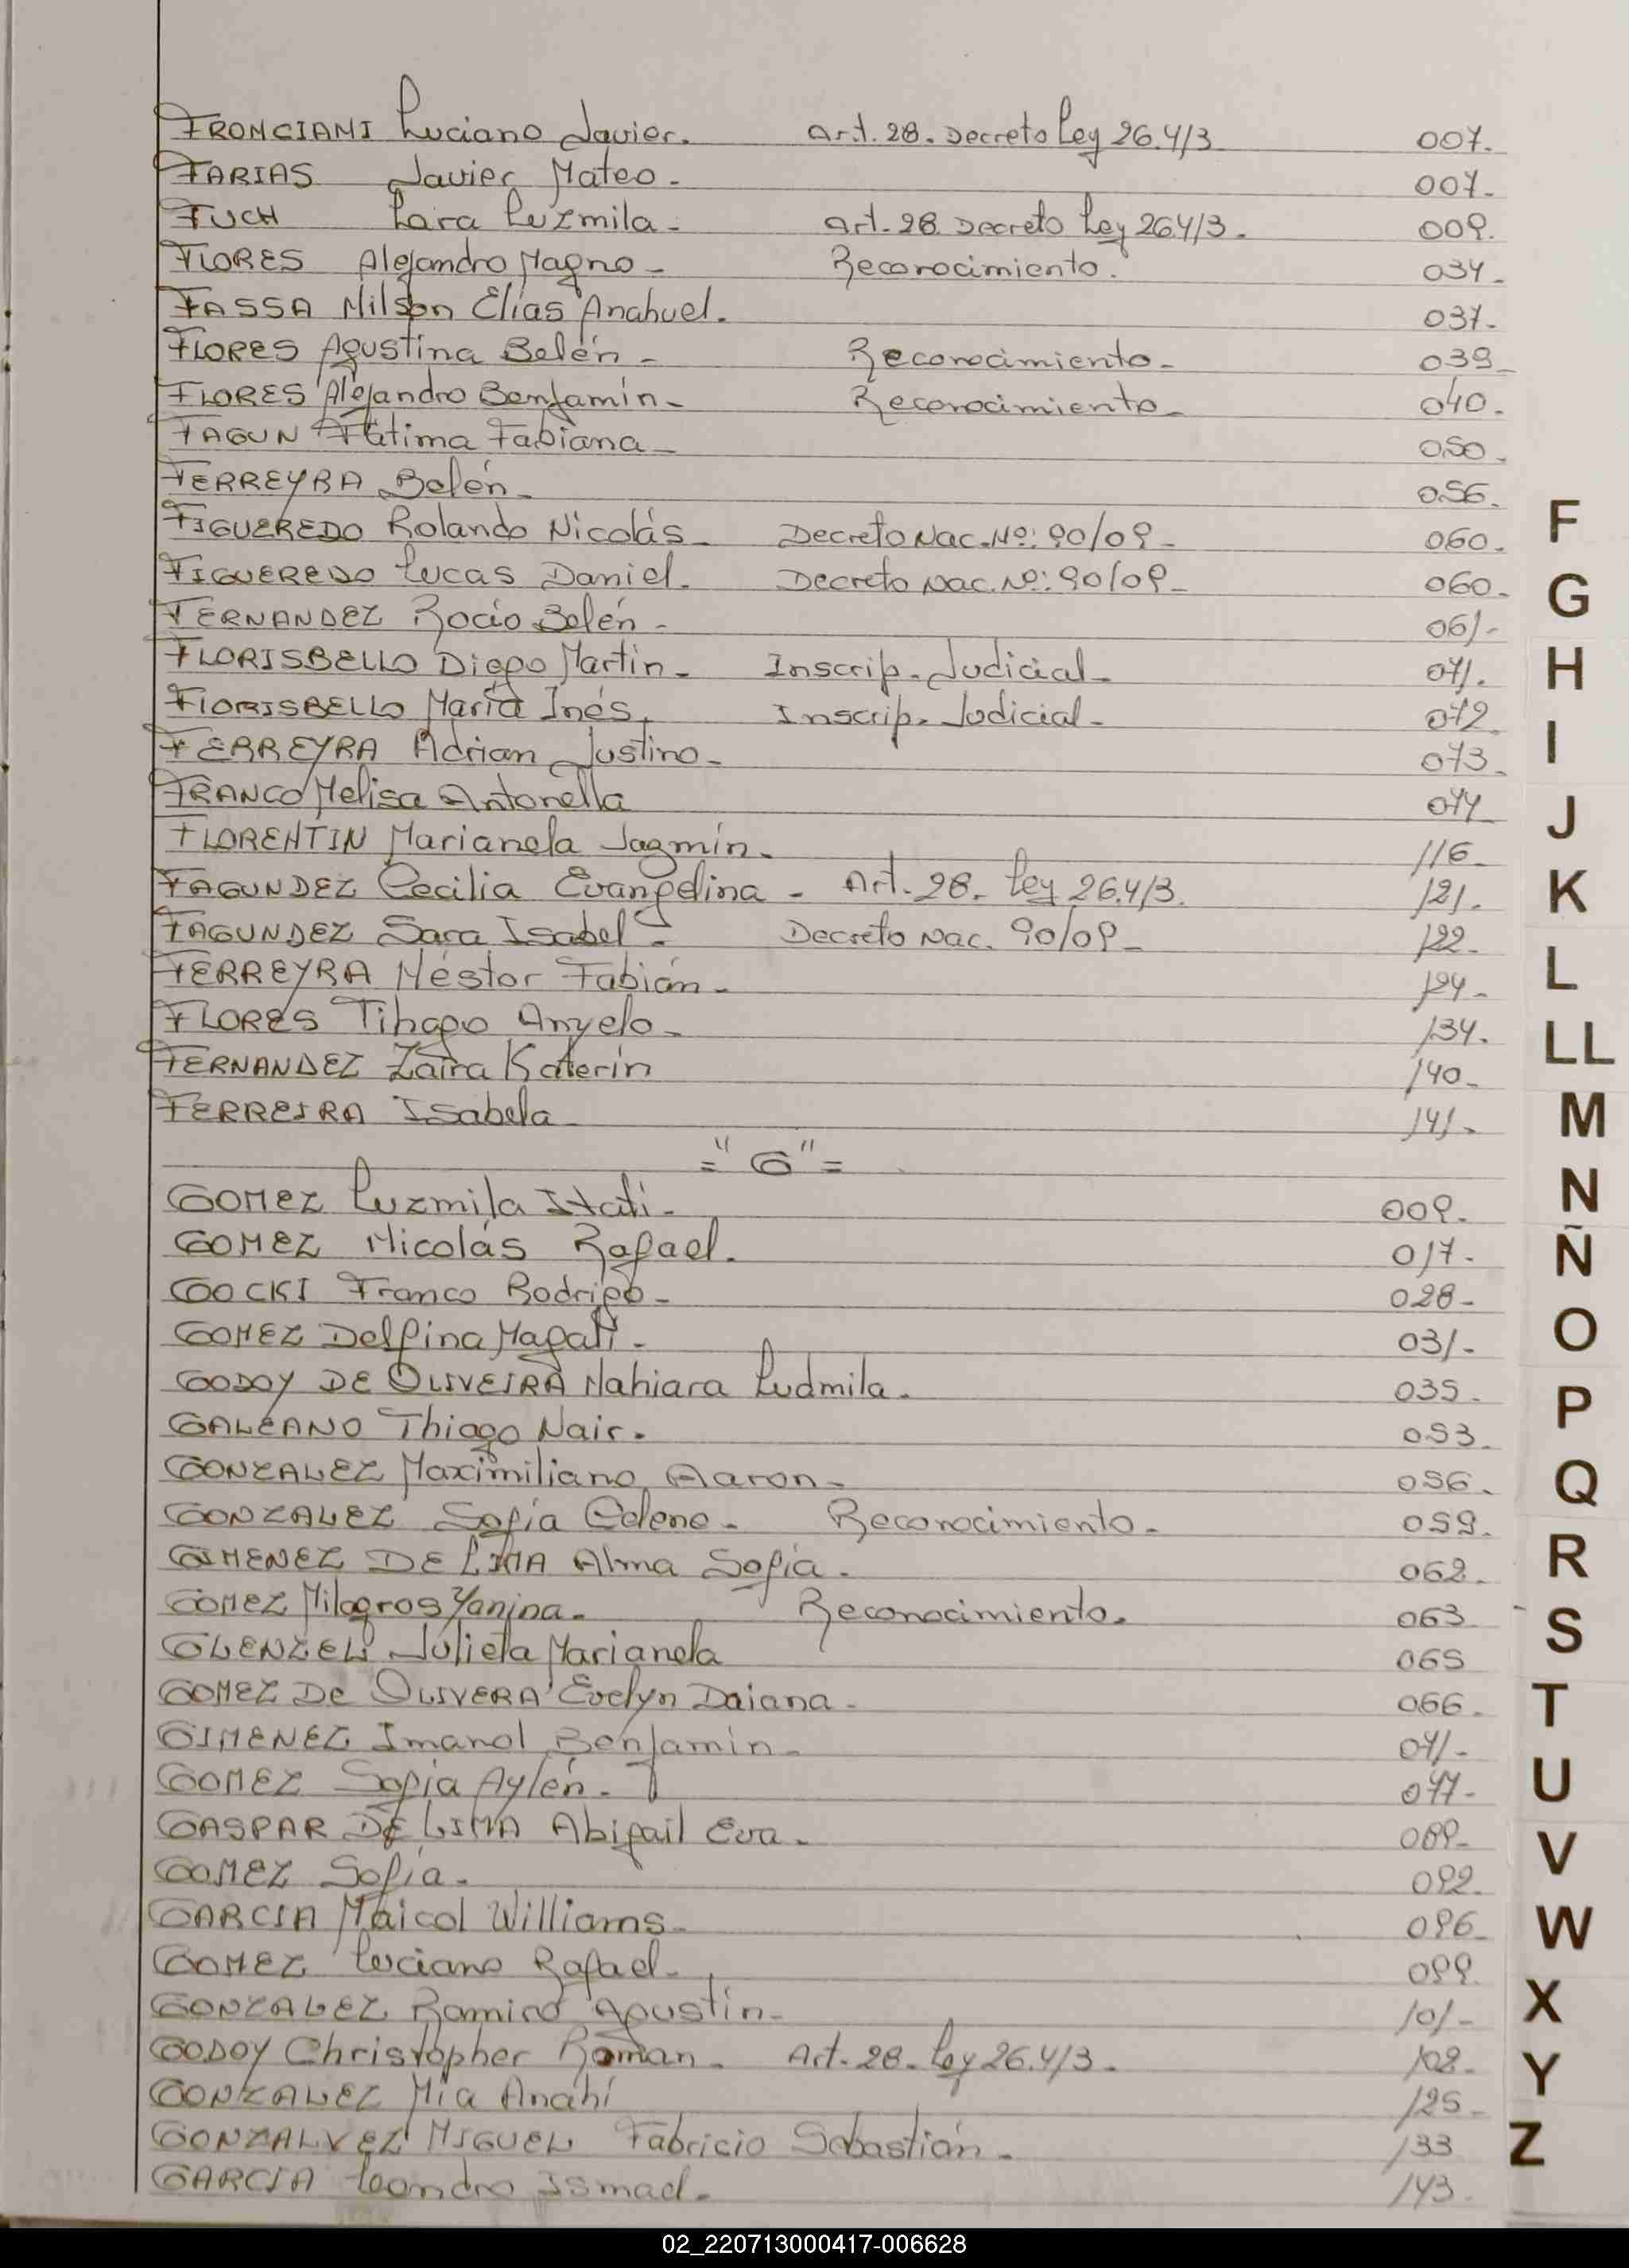 FRONCIANI Luciano Javier. Art. 28. Decreto Ley 26.413 007.
FARIAS Javier Mateo. 007.
FUCH Lara Luzmila. Art. 28. Decreto Ley 26413. 009.
FLORES Alejandro Magno. Reconocimiento. 034.
FASSA Milson Elías Anahuel. 037.
FLORES Agustina Belén. Reconocimiento. 039.
FLORES Alejandro Benjamín. Reconocimiento. 040.
FAGUN Fátima Fabiana. 050.
FERREYRA Belén. 056.
FIGUEREDO Rolando Nicolás. Decreto Nac. Nº: 90/09. 060.
FIGUEREDO Lucas Daniel. Decreto Nac. Nº: 90/09. 060.
FERNANDEZ Rocío Belén. 061.
FLORISBELLO Diego Martin. Inscrip. Judicial. 071.
FLORISBELLO María Inés. Inscrip. Judicial. 072.
FERREYRA Adrian Justino. 073.
FRANCO Melisa Antonella 077
FLORENTIN Marianela Jazmín. 116.
FAGUNDEZ Cecilia Evangelina. Art. 28. Ley 26.413. 121.
FAGUNDEZ Sara Isabel. Decreto Nac. 90/09. 122.
FERREYRA Néstor Fabián. 124.
FLORES Tihago Anyelo. 134.
FERNANDEZ Zaira Katerin 140.
FERREIRA Isabela 141.
="G"=
GOMEZ Luzmila Itatí. 009.
GOMEZ Nicolás Rafael. 017.
GOCKI Franco Rodrigo. 028.
GOMEZ Delfina Magalí. 031.
GODOY DE OLIVEIRA Nahiara Ludmila. 035.
GALEANO Thiago Nair. 053.
GONZALEZ Maximiliano Aaron. 056.
GONZALEZ Sofía Celene. Reconocimiento. 059.
GIMENEZ DE LIMA Alma Sofía. 062.
GOMEZ Milagros Yanina. Reconocimiento. 063
GLENZEL Julieta Marianela 065
GOMEZ De OLIVERA Evelyn Daiana. 066.
GIMENEZ Imanol Benjamín. 071.
GOMEZ Sofía Aylén. 077.
GASPAR DE LIMA Abigail Eva. 089.
GOMEZ Sofía. 092.
GARCIA Maicol Williams. 096.
GOMEZ Luciano Rafael. 099.
GONZALEZ Ramiro Agustín. 101.
GODOY Christopher Roman. Art. 28. Ley 26.413. 108.
GONZALEZ Mía Anahí 125.
GONZALVEZ MIGUEL Fabricio Sebastián. 133
GARCIA Leandro Ismael. 143.
F
G
H
I
J
K
L
LL
M
N
Ñ
O
P
Q
R
S
T
U
V
W
X
Y
Z
02_220713000417-006628